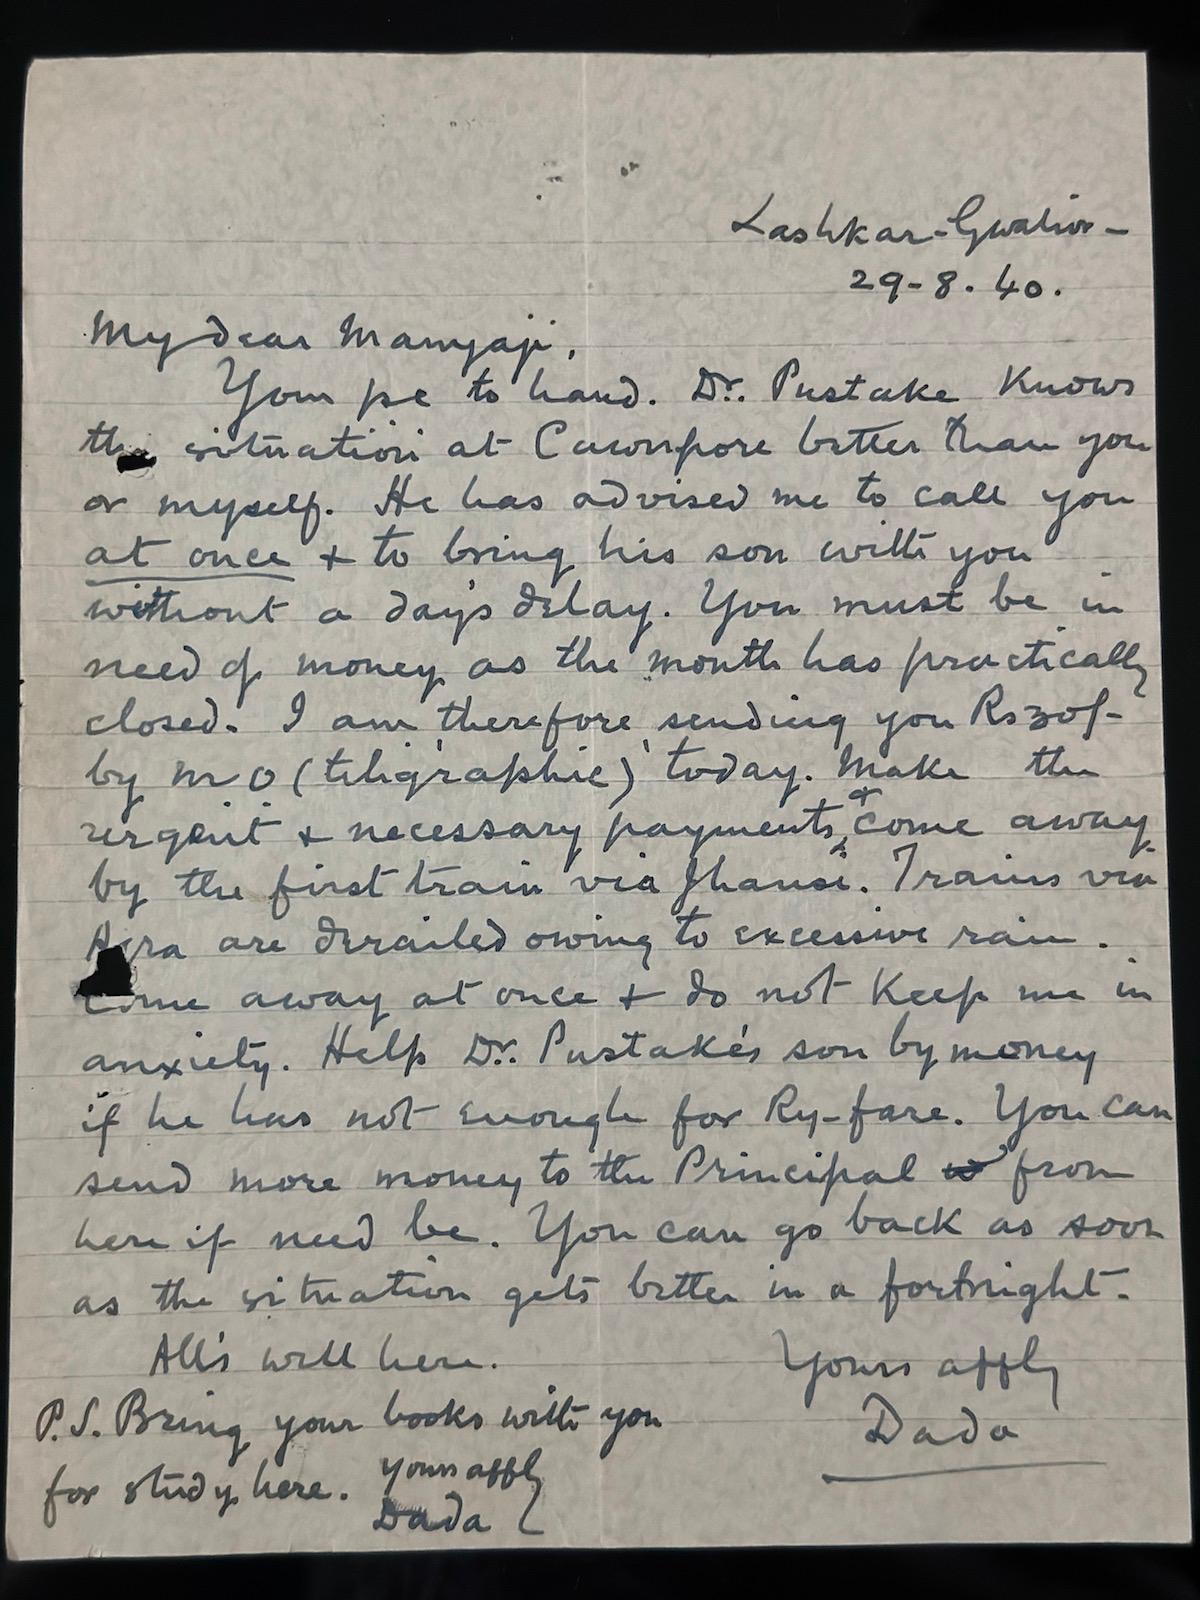 Lashkar-Gwalior-
29-8.40.
My dear Manyaji,
Your pc to hand. Dr. Pustake Knows
the situation at Cawnpore better than you
or myself. He has advised me to call you
at once & to bring his son with you
without a day's delay. You must be in
need of money as the month has practically
closed. I am therefore sending you Rs 30/-
by M O (teligraphic) today. Make the
urgent & necessary payments & come away
by the first train via Jhansi. Trains via
Agra are derailed owing to excessive rain.
Come away at once & do not Keep me in
anxiety. Help Dr. Pustake's son by money
if he has not enough for Ry-fare. You can
send more money to the Principal from
here if need be. You can go back as soon
as the situation gets better in a fortnight.
All's well here.
Yours affly
Dada
P.S. Bring your books with you
for study here.
Yours affly
Dada